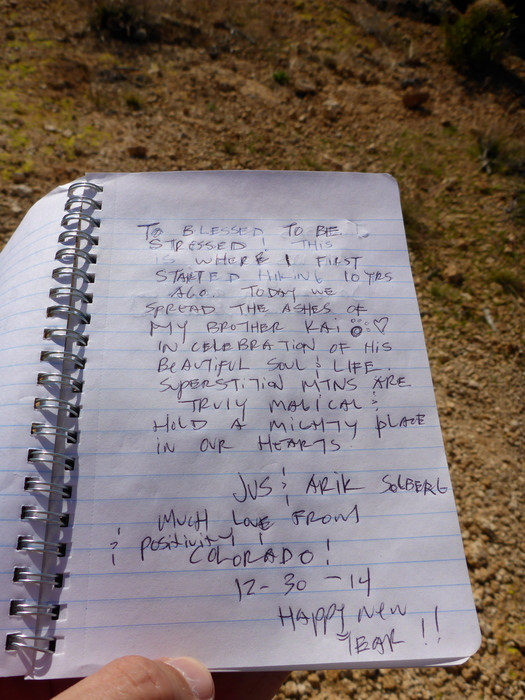 TO BLESSED TO BE
STRESSED! THIS
IS WHERE I FIRST
STARTED HIKING 10 YRS
AGO. TODAY WE
SPREAD THE ASHES OF
MY BROTHER KAI ♡
IN CELEBRATION OF HIS
BEAUTIFUL SOUL & LIFE.
SUPERSTITION MTNS ARE
TRULY MAGICAL &
HOLD A MIGHTY PLACE
IN OUR HEARTS.
JUS & ARIK SOLBERG
MUCH LOVE FROM
& POSITIVITY!
COLORADO!
12-30-14
HAPPY NEW
YEAR!!